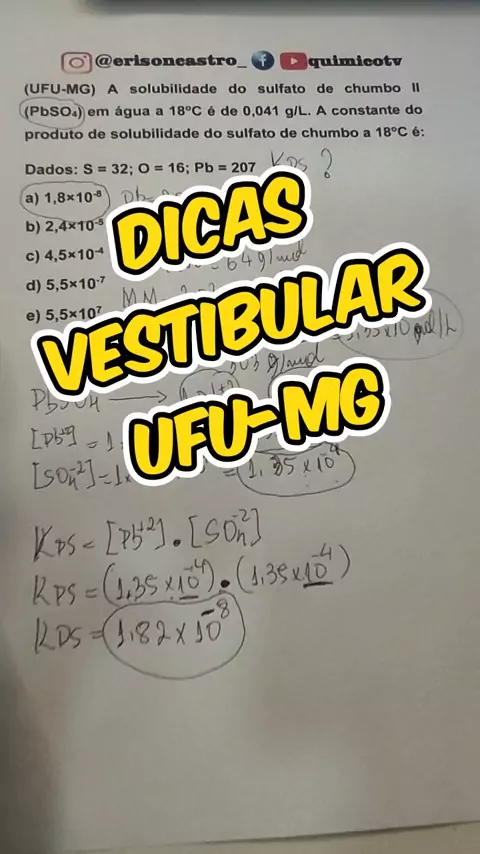 @erisoncastro_ quimicotv
(UFU-MG) A solubilidade do sulfato de chumbo II
(PbSO₄) em água a 18ºC é de 0,041 g/L. A constante do
produto de solubilidade do sulfato de chumbo a 18ºC é:
Dados: S = 32; O = 16; Pb = 207 KPS ?
a) 1,8×10⁻⁸
b) 2,4×10⁻⁵
c) 4,5×10⁻⁴
d) 5,5×10⁻⁷
e) 5,5×10⁷
DICAS
VESTIBULAR
UFU-MG
64 g/mol
MM
303 g/mol
PbSO4 →
[Pb⁺²] = 1,
[SO₄⁻²] = 1, = 1,35 × 10⁻⁴
KPS = [Pb⁺²] . [SO₄⁻²]
KPS = (1,35 × 10⁻⁴) . (1,35 × 10⁻⁴)
KPS = 1,82 × 10⁻⁸